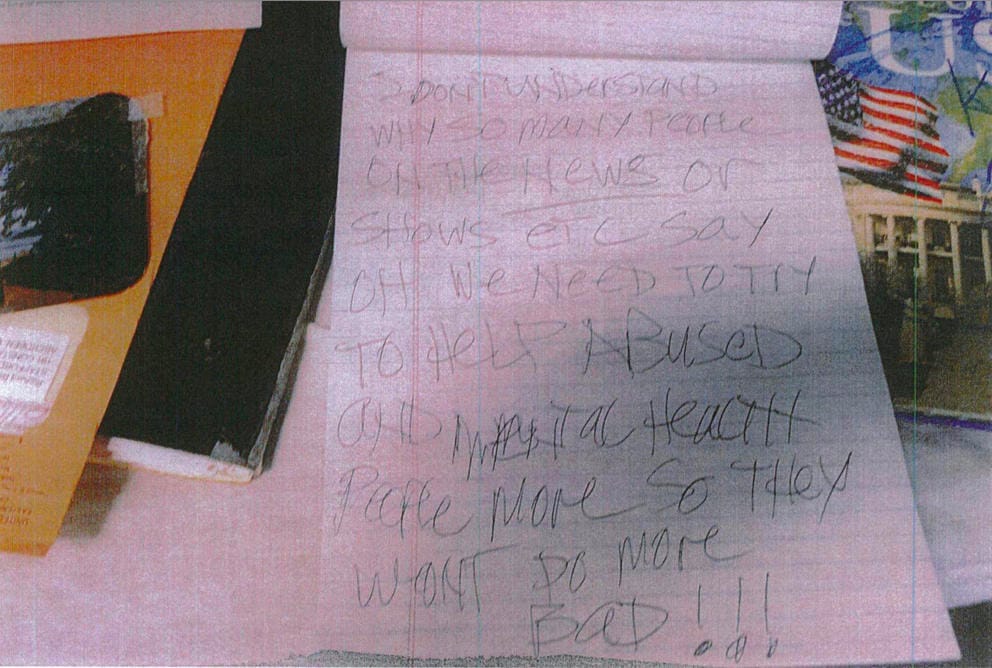 I DON'T UNDERSTAND
WHY SO MANY PEOPLE
ON THE NEWS OR
SHOWS ETC SAY
OH WE NEED TO TRY
TO HELP ABUSED
AND MENTAL HEALTH
PEOPLE MORE SO THEY
WONT DO MORE
BAD!!!
US
UNITED